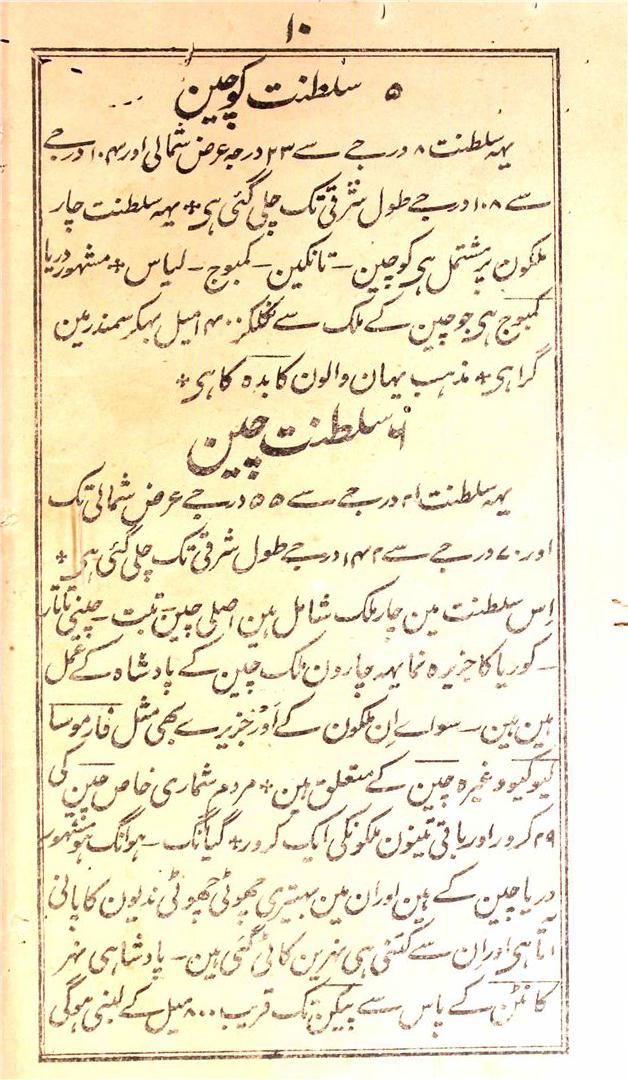 ۱۰
۵ سلطنت کوچین
یہہ سلطنت ۸ درجے سے ۲۳ درجہ عرض شمالی اور ۱۰۴ درجے
سے ۱۰۸ درجے طول شرقی تک چلی گئی ہی + یہہ سلطنت چار
ملکون پر مشتمل ہی کوچین - تانکین - کمبوج - لیاس + مشہور دریا
کمبوج ہی جو چین کے ملک سے نکلکر ۱۴۰۰ میل بہکر سمندر مین
گرا ہی + مذہب یہان والون کا بدہ کا ہی +
۶ سلطنت چین
یہہ سلطنت ۲۱ درجے سے ۵۵ درجے عرض شمالی تک
اور ۷۰ درجے سے ۱۴۲ درجے طول شرقی تک چلی گئی ہی +
اِس سلطنت مین چار ملک شامل ہین اصلی چین - تبت - چینی تاتار
- کوریا کا جزیرہ نما یہہ چارون ملک چین کے پادشاہ کے عمل
مین ہین - سواے اِن ملکون کے اَوْر جزیرے بھی مثل فارموسا
لیوکیو وغیرہ چین کے متعلق ہین + مردم شماری خاص چین کی
۲۹ کرور اور باقی تینون ملکونکی ایک کرور + کیانگ - ہوانگ ہو مشہور
دریا چین کے ہین اور ان مین بہتیری چھوٹی چھوٹی ندیون کا پانی
آتا ہی اور اِن سے کتنی ہی نہرین کاٹی گئی ہین - پادشاہی نہر
کانٹن کے پاس سے پیکن تک قریب ۸۰۰ میل کے لنبی ہوگی